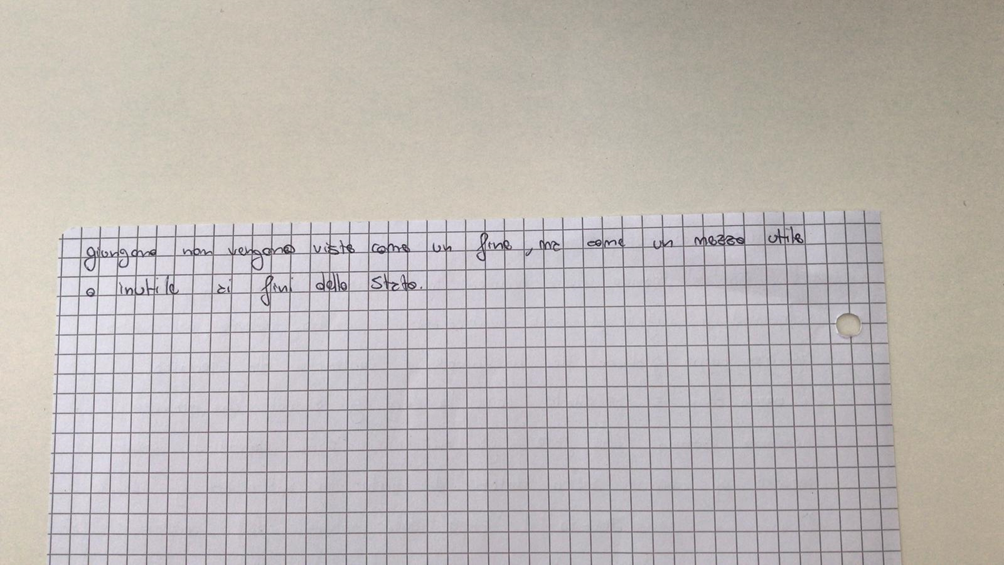 giungono non vengono viste come un fine, ma come un mezzo utile
o inutile ai fini dello Stato.